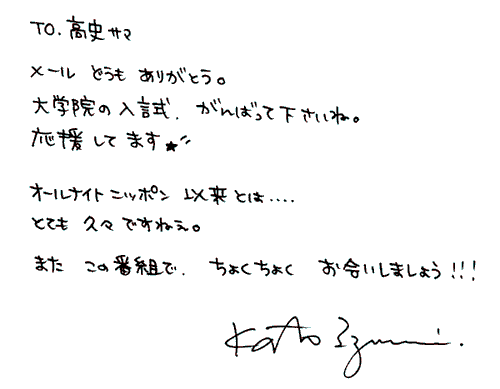 TO. 高史サマ
メール どうも ありがとう。
大学院の入試、がんばって下さいね。
応援してます★
オールナイトニッポン 以来とは....
とても 久々ですねぇ。
また この番組で、ちょくちょく お会いしましょう!!!
Kato Izumi.